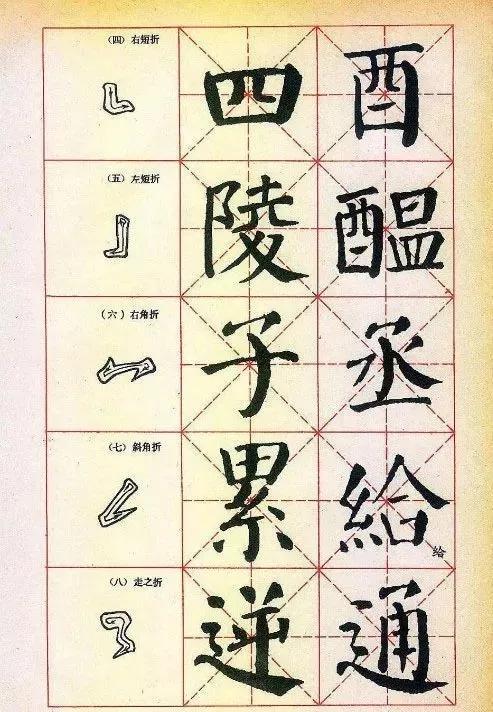 (四) 右短折
四 酉
(五) 左短折
陵 醖
(六) 右角折
子 丞
(七) 斜角折
累 給
给
(八) 走之折
逆 通